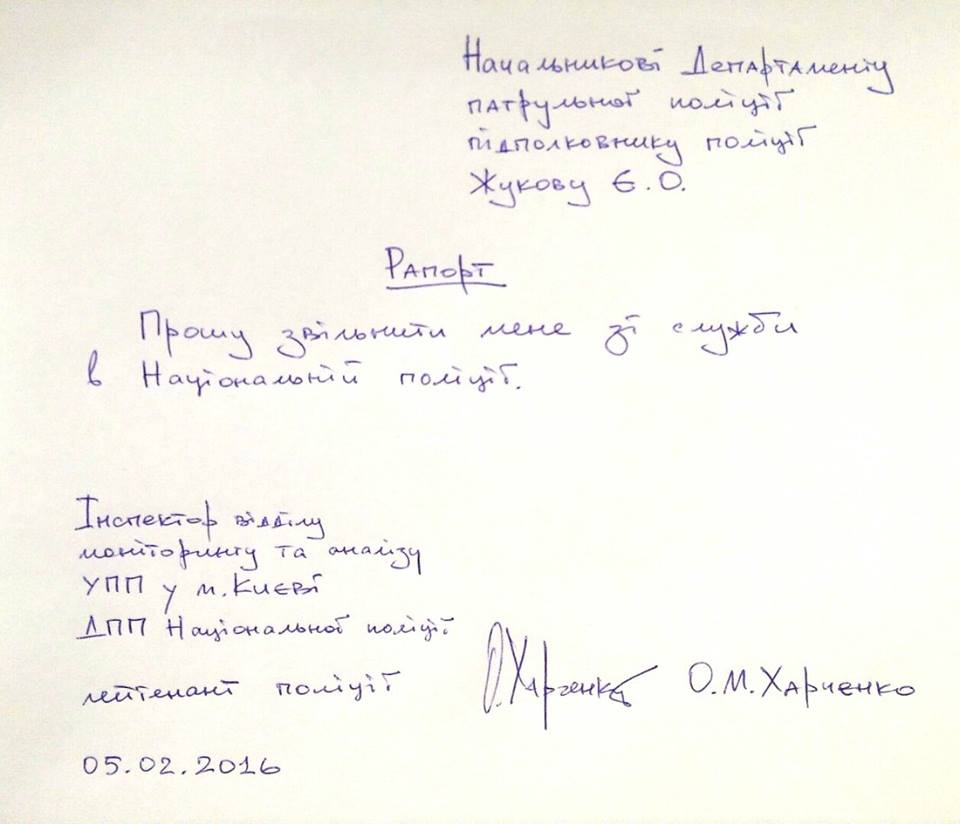 Начальникові Департаменту
патрульної поліції
підполковнику поліції
Жукову Є.О.
Рапорт
Прошу звільнити мене зі служби
в Національній поліції.
Інспектор відділу
моніторингу та аналізу
УПП у м.Києві
ДПП Національної поліції
лейтенант поліції О.Харченко О.М.Харченко
05.02.2016